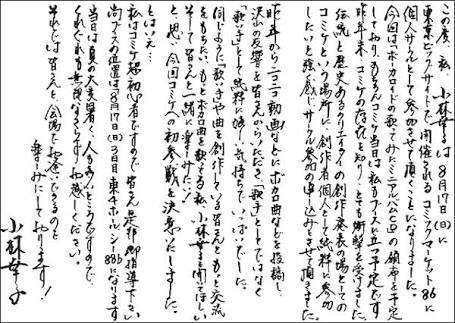 この度、私、小林幸子は8月17日(日)に
東京ビックサイトで開催されるコミックマーケット86に
個人サークルとして参加させて頂くことになりました。
今回はボーカロイドの歌ってみたミニアルバムCDの頒布を予定
しており、もちろんコミケ当日は私もブースに立つ予定です。
昨年来、コミケの存在を知り、とても衝撃を受けました。
伝統と歴史あるクリエイターの創作発表の場としての
コミケという場所に、創作者個人として純粋に参加
したいと強く感じ、サークル参加の申し込みをさせて頂きました。
昨年からニコニコ動画などにボカロ曲などを投稿し、
沢山の反響を皆さんからいただき、「歌手」としてではなく
「歌い手」として純粋に嬉しい気持ちでいっぱいでした。
同じように「歌い手」や曲を創作している皆さんともっと交流
をもちたい、もっとボカロ曲を歌ってる私、小林幸子を聞いてほしい
そして皆さんと一緒に楽しみたい!
と思い、今回コミケへの初参戦を決意いたしました。
とはいえ…
私はコミケ超初心者ですので皆さん是非御指導下さい。
尚ブースの位置は8月17日(日)3日目東4ホール・シ-88bになります
当日は夏の大変暑く、人も多いとうかがってますので、
くれぐれも無理なさらずにお越しください。
それでは皆さんと、会場でお会いできるのを
楽しみにしております!
小林幸子